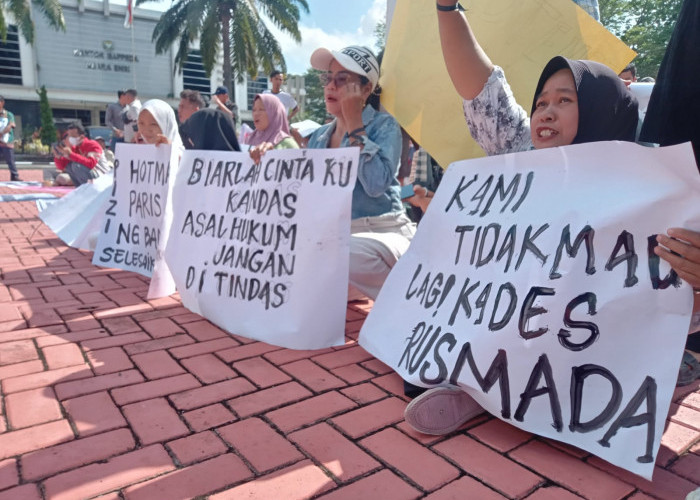 KANTOR BAPPEDA
HOTMAN
PARIS
SELESAIK
BIARLAH CINTA KU
KANDAS
ASAL HUKUM
JANGAN
DI TINDAS
KAMI
TIDAK MAU
LAGI KADES
RUSMADA